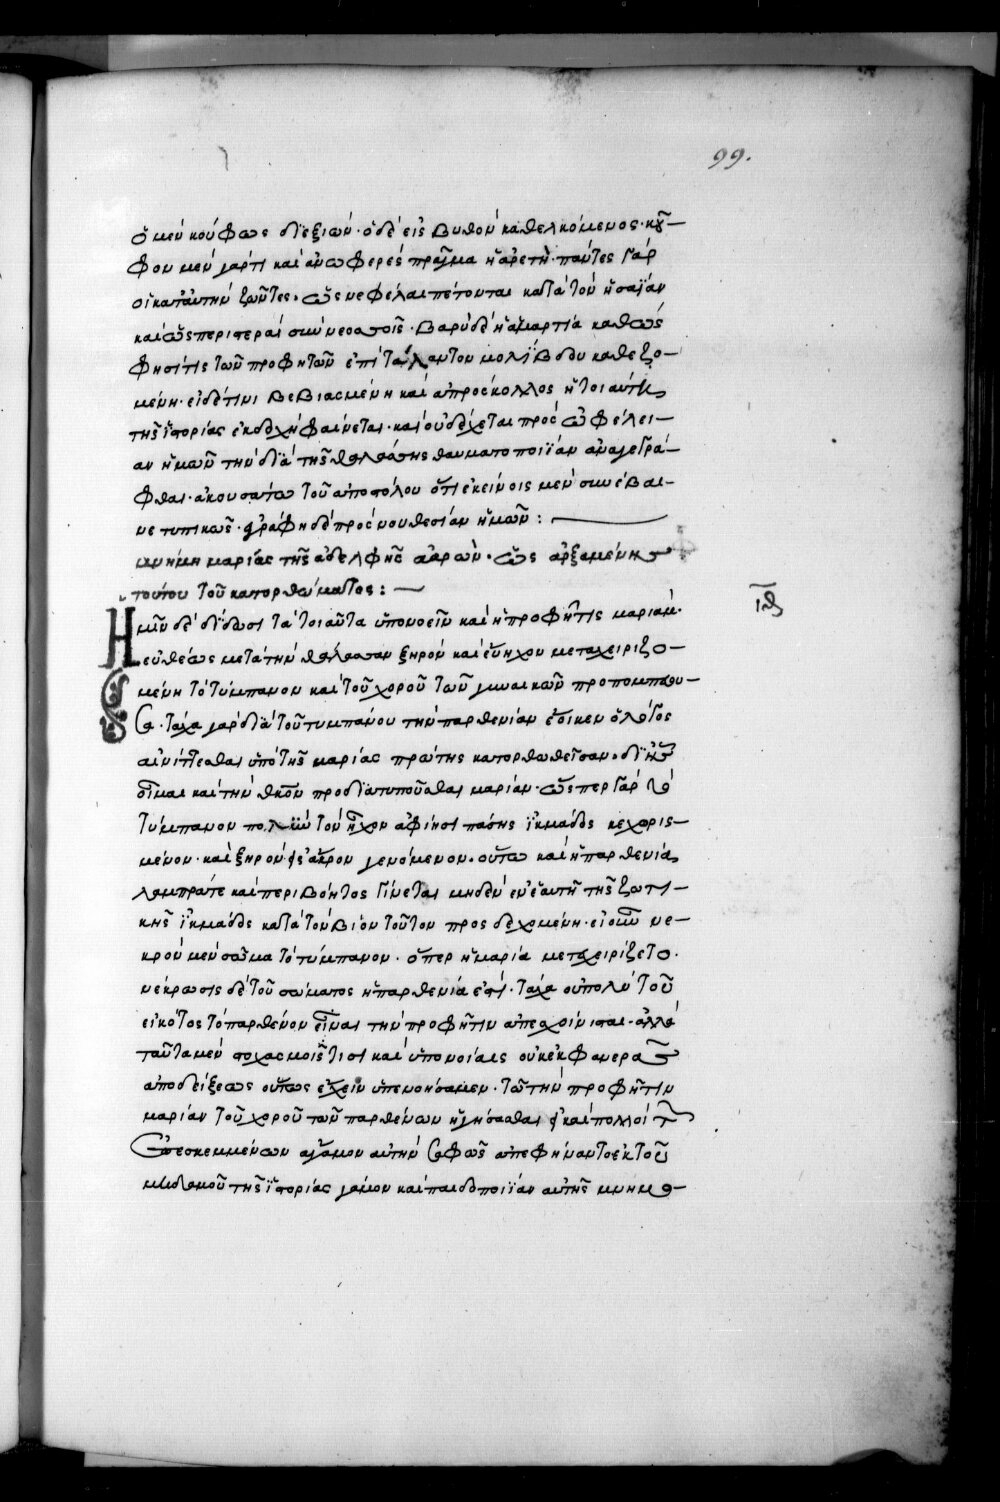 99.
ὁ μὲν κούφως διεξιών· ὁ δὲ εἰς βυθὸν καθελκόμενος· κοῦ-
φον μὲν γάρ τι καὶ ἀνωφερὲς πρᾶγμα ἡ ἀρετή· πάντες γὰρ
οἱ κατ' αὐτὴν ζῶντες, ὡς νεφέλαι πέτονται κατὰ τὸν ἡσαΐαν
καὶ ὡς περιστεραὶ σὺν νεοσσοῖς· βαρὺ δὲ ἡ ἁμαρτία καθὼς
φησί τις τῶν προφητῶν ἐπὶ τάλαντον μολίβδου καθεζο-
μένη· εἰ δέ τινι βεβιασμένη καὶ ἀπρόσκολλος ἡ τοιαύτη
τῆς ἱστορίας ἐκδοχὴ φαίνεται· καὶ οὐ δέχεται πρὸς ὠφέλει-
αν ἡμῶν τὴν διὰ τῆς θαλάσσης θαυματοποιΐαν ἀναγεγρά-
φθαι· ἀκουσάτω τοῦ ἀποστόλου ὅτι ἐκείνοις μὲν συνέβαι-
νε τυπικῶς· ἐγράφη δὲ πρὸς νουθεσίαν ἡμῶν :
μνήμη μαρίας τῆς ἀδελφῆς ἀαρών· ὡς ἀρξαμένης
τούτου τοῦ κατορθώματος: ιθ
Ἡμῖν δὲ δίδωσι τὰ τοιαῦτα ὑπονοεῖν καὶ ἡ προφῆτις μαριάμ·
εὐθέως μετὰ τὴν θάλασσαν ξηρὸν καὶ εὔηχον μεταχειριζο-
μένη τὸ τύμπανον καὶ τοῦ χοροῦ τῶν γυναικῶν προπομπεύου-
σα· τάχα γὰρ διὰ τοῦ τυμπάνου τὴν παρθενίαν ἔοικεν ὁ λόγος
αἰνίττεσθαι ὑπὸ τῆς μαρίας πρώτης κατορθωθεῖσαν· δι' ἧς
οἶμαι καὶ τὴν θεοτόκον προδιατυποῦσθαι μαρίαν· ὥσπερ γὰρ τὸ
τύμπανον πολὺν τὸν ἦχον ἀφίησι πάσης ἰκμάδος κεχωρισ-
μένον· καὶ ξηρὸν ἐς ἄκρον γενόμενον· οὕτω καὶ ἡ παρθενία
λαμπρά τε καὶ περιβόητος γίνεται μηδὲν ἐν ἑαυτῇ τῆς ζωτι-
κῆς ἰκμάδος κατὰ τὸν βίον τοῦτον προσδεχομένη· εἰ οὖν νε-
κρὸν μὲν σῶμα τὸ τύμπανον· ὅπερ ἡ μαρία μετεχειρίζετο·
νέκρωσις δὲ τοῦ σώματος ἡ παρθενία ἐστί· τάχα οὐ πολὺ τοῦ
εἰκότος τὸ παρθένον εἶναι τὴν προφῆτιν ἀπεσχοίνισται· ἀλλὰ
ταῦτα μὲν στοχασμοῖς τισι καὶ ὑπονοίαις οὐκ ἐκ φανερᾶς
ἀποδείξεως οὕτως ἔχειν ὑπενοήσαμεν· τῷ τὴν προφῆτιν
μαρίαν τοῦ χοροῦ τῶν παρθένων ἡγήσασθαι εἰ καὶ πολλοὶ τῶν
ἐπεσκεμμένων ἄγαμον αὐτὴν σαφῶς ἀπεφήναντο ἐκ τοῦ
μηδαμοῦ τῆς ἱστορίας γάμον καὶ παιδοποιΐαν αὐτῆς μνημο-